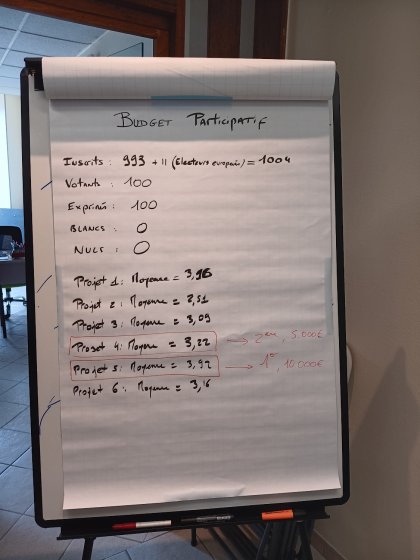 BUDGET PARTICIPATIF
Inscrits : 993 + 11 (Électeurs européens) = 1004
Votants : 100
Exprimés : 100
BLANCS : 0
NULS : 0
Projet 1: Moyenne = 3,16
Projet 2: Moyenne = 2,51
Projet 3: Moyenne = 3,09
Projet 4: Moyenne = 3,22 → 2ème, 5.000€
Projet 5: Moyenne = 3,92 → 1er, 10.000€
Projet 6: Moyenne = 3,16